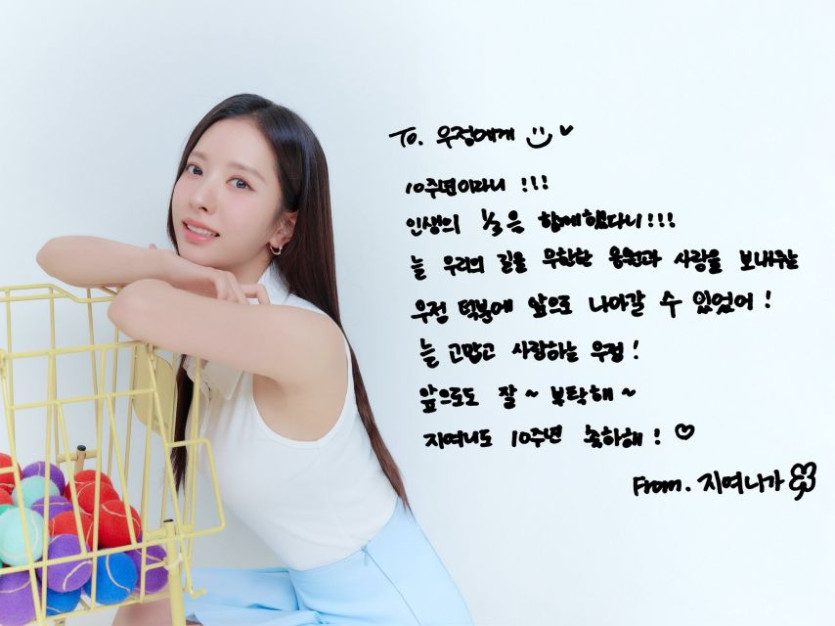 To. 우정에게
10주년이라니 !!!
인생의 1/3은 함께했다니!!!
늘 우리의 길을 무한한 응원과 사랑을 보내주는
우정 덕분에 앞으로 나아갈 수 있었어!
늘 고맙고 사랑하는 우정!
앞으로도 잘~ 부탁해~
지여니도 10주년 축하해! ♡
From. 지여니가